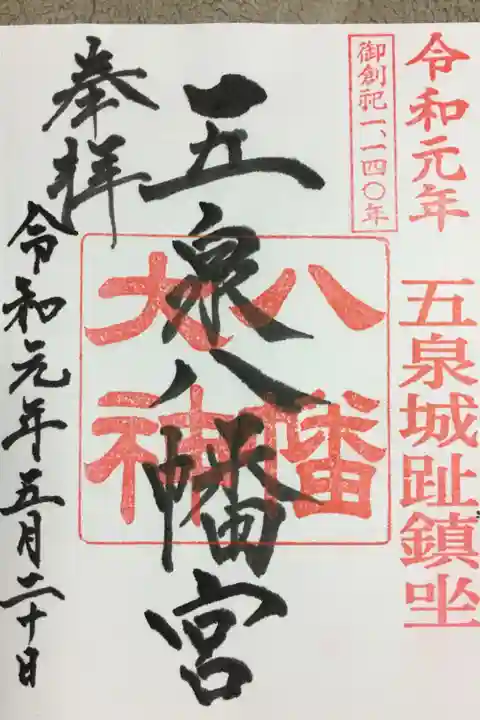 令和元年 五泉城趾鎮坐
御創祀一、一四〇年
五泉八幡宮
八幡
大神
奉拝
令和元年五月二十日